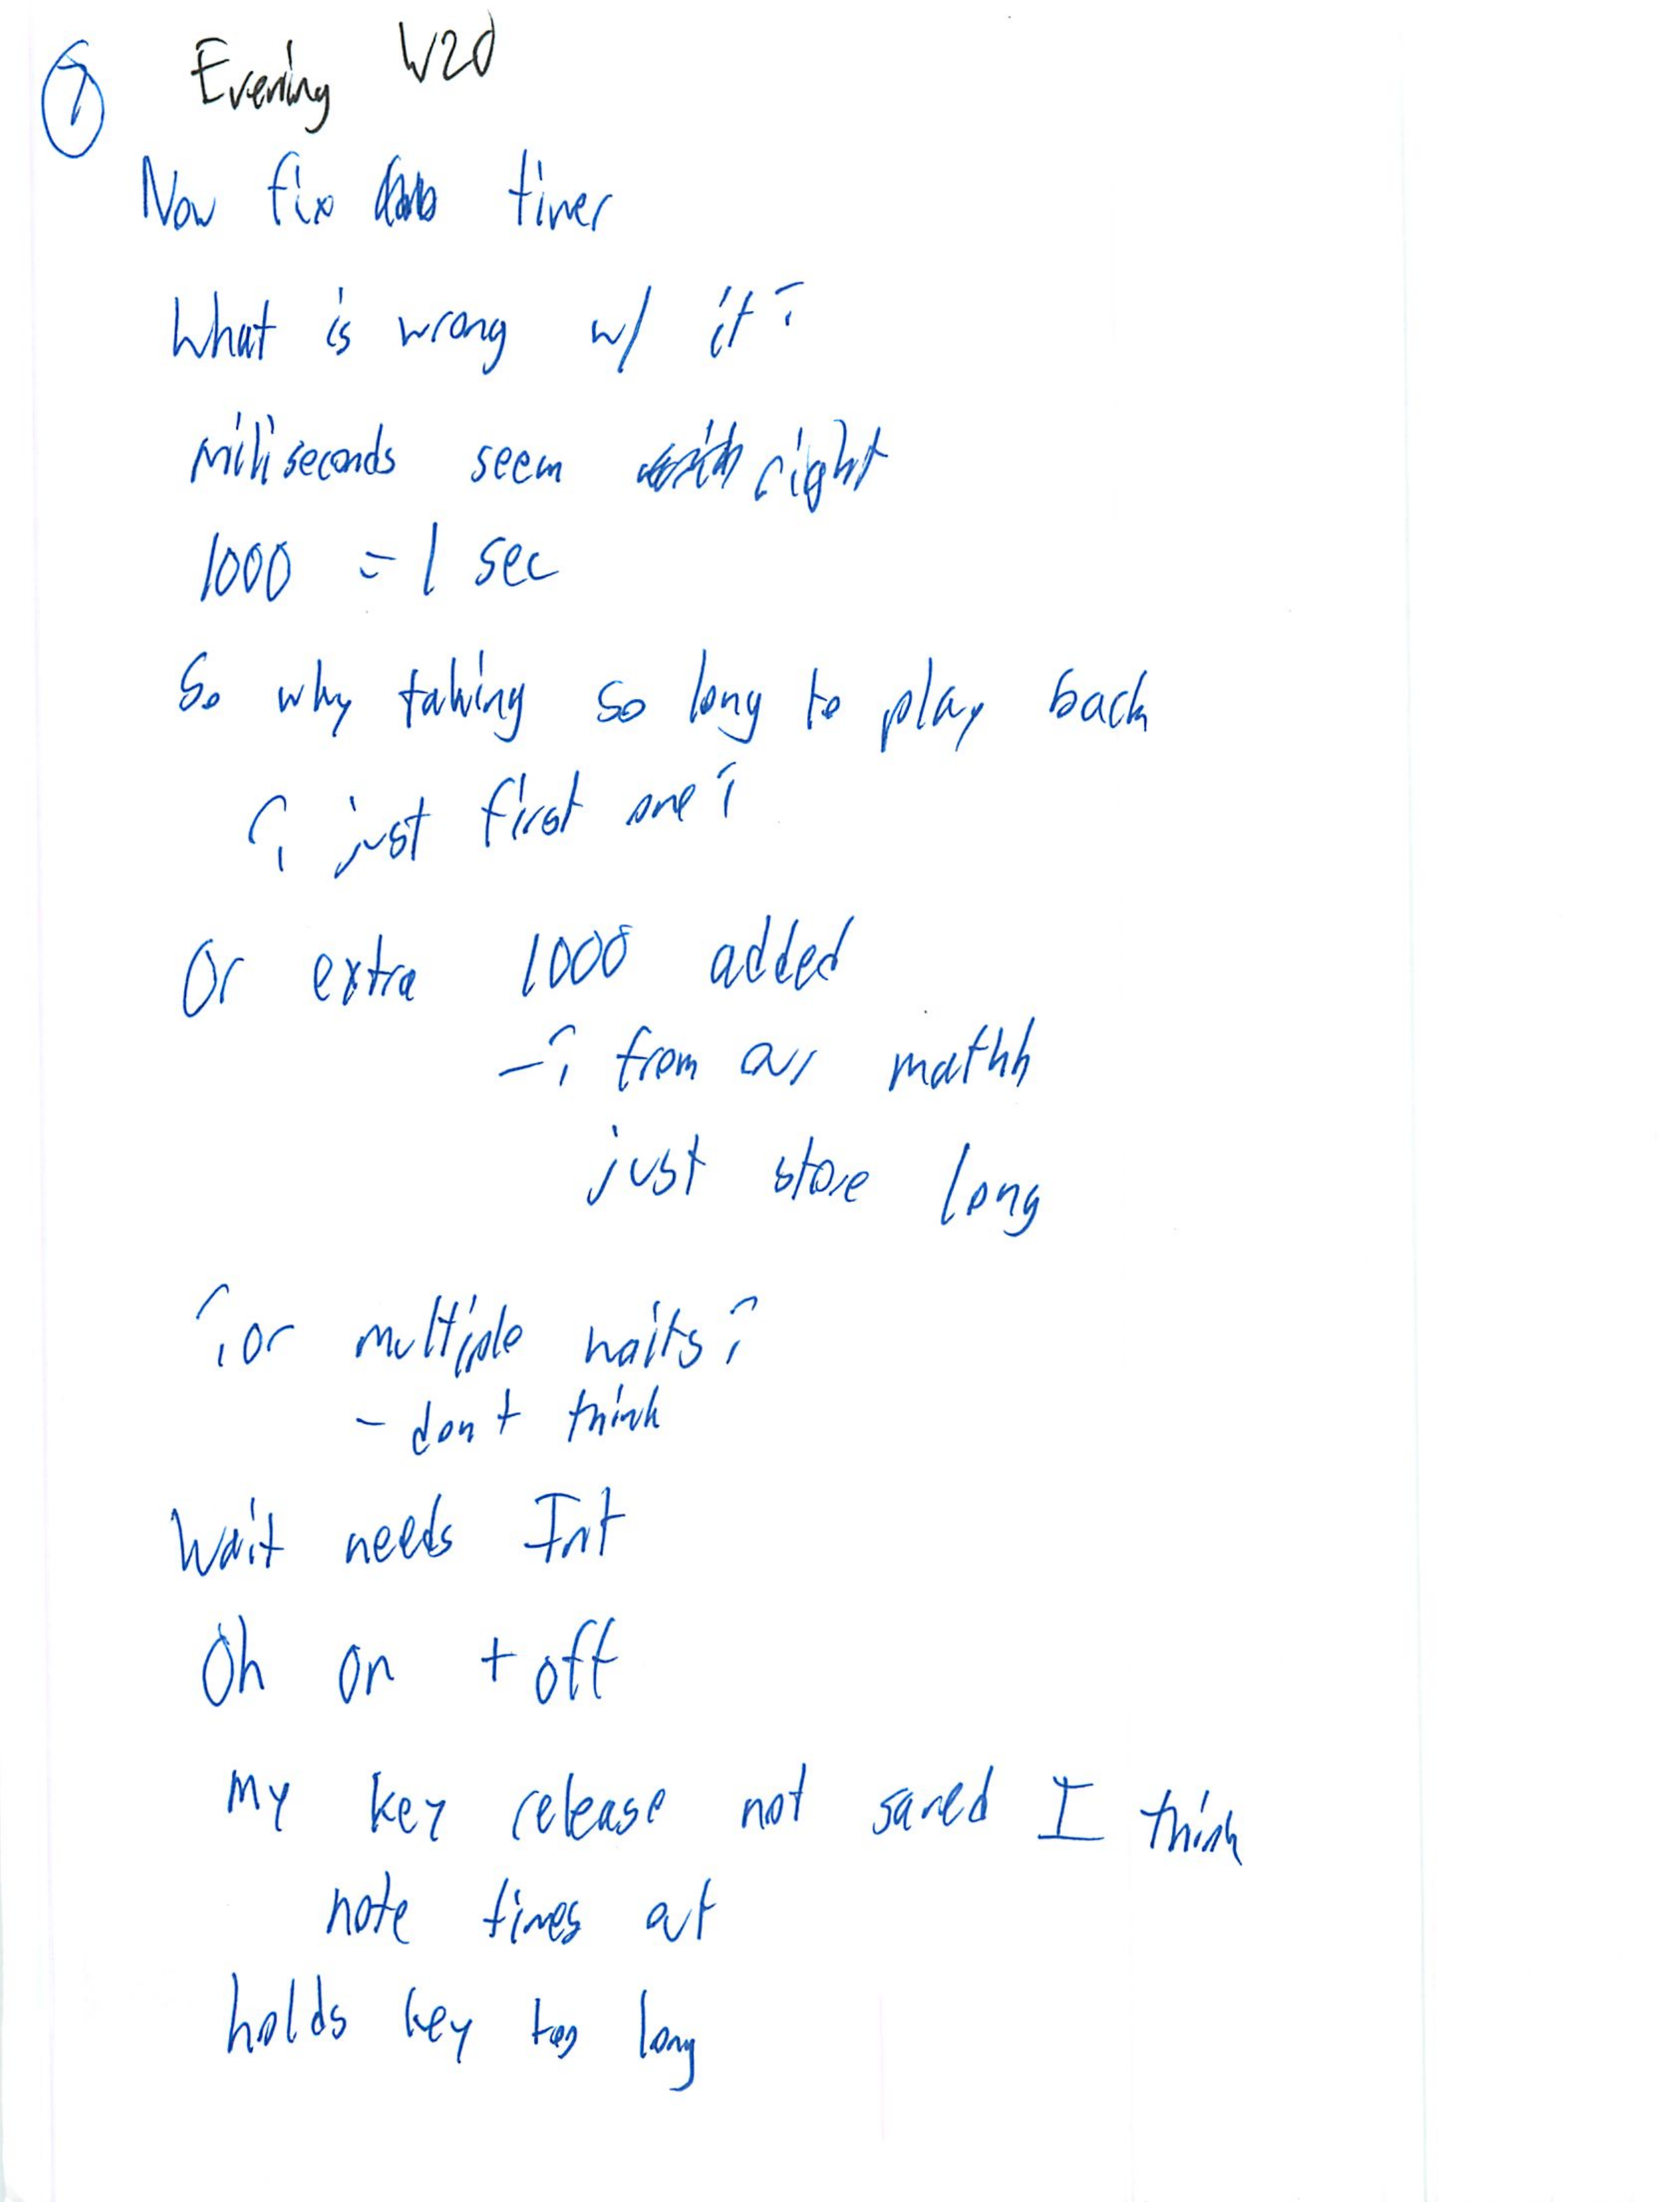 7 Evening W20
Now fix timer
What is wrong w/ it?
Miliseconds seem right
1000 = 1 sec
So why taking so long to play back
¿ just first one?
Or extra 1000 added
-? from our mathh
just store long
¿or multiple waits?
- don't think
Wait needs Int
Oh on + off
My key release not saved I think
note times at
holds key too long